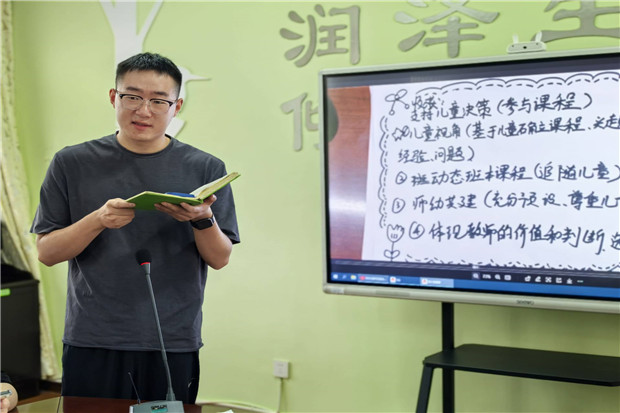 润泽生
支持儿童决策（参与课程）
儿童视角（基于儿童确立课程、
经验、问题）
② 班动态班本课程（追随儿童）
③ 师幼共建（充分预设、尊重儿
④ 体现教师的价值和判断、